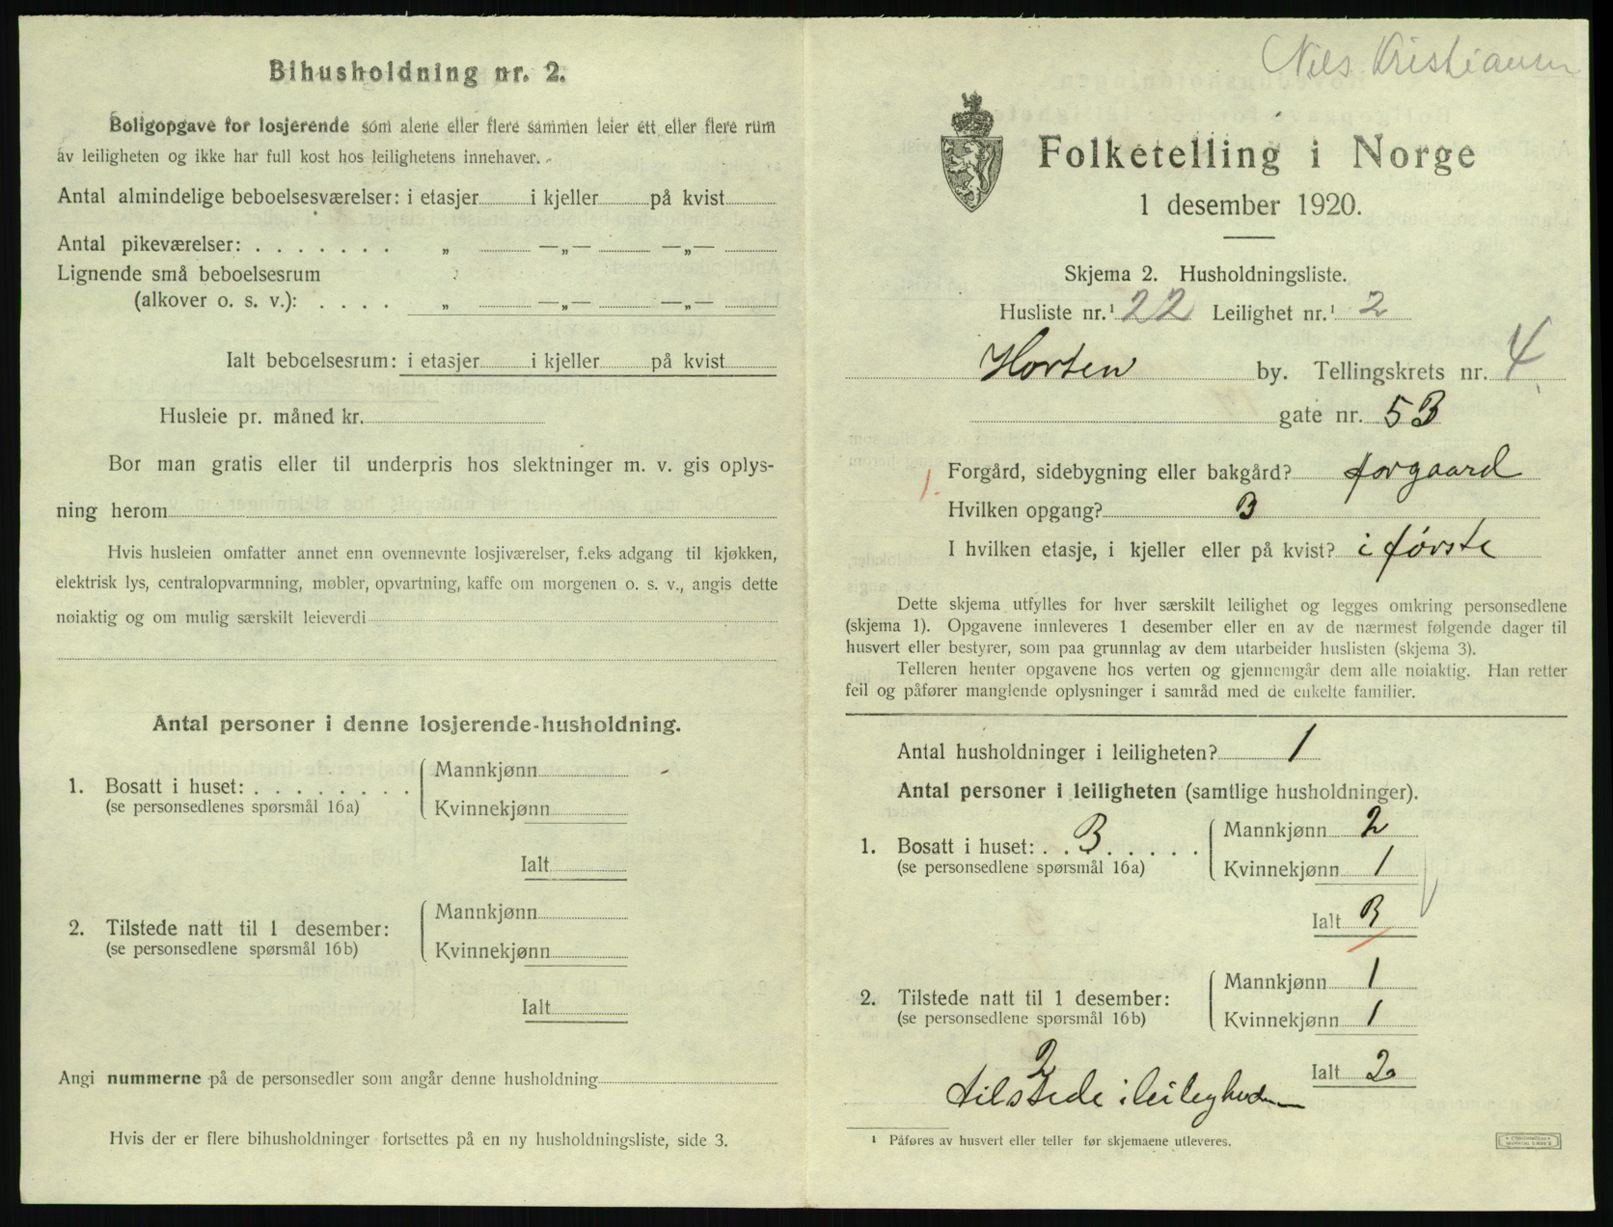 Bihusholdning nr. 2.
Boligopgave for losjerende som alene eller flere sammen leier ett eller flere rum
av leiligheten og ikke har full kost hos leilighetens innehaver.
Antal almindelige beboelsesværelser: i etasjer i kjeller på kvist
Antal pikeværelser: . . . . . . . „ —„— —„—
Lignende små beboelsesrum
(alkover o. s. v.): . . . . „ —„— —„—
Ialt beboelsesrum: i etasjer i kjeller på kvist
Husleie pr. måned kr.
Bor man gratis eller til underpris hos slektninger m. v. gis oplys-
ning herom
Hvis husleien omfatter annet enn ovennevnte losjiværelser, f.eks adgang til kjøkken,
elektrisk lys, centralopvarmning, møbler, opvartning, kaffe om morgenen o. s. v., angis dette
nøiaktig og om mulig særskilt leieverdi
Antal personer i denne losjerende-husholdning.
1. Bosatt i huset: . . . . . . . .
(se personsedlenes spørsmål 16a)
Mannkjønn
Kvinnekjønn
Ialt
2. Tilstede natt til 1 desember:
(se personsedlene spørsmål 16b)
Mannkjønn
Kvinnekjønn
Ialt
Angi nummerne på de personsedler som angår denne husholdning
Hvis der er flere bihusholdninger fortsettes på en ny husholdningsliste, side 3.
Nils Kristiansen
Folketelling i Norge
1 desember 1920.
Skjema 2. Husholdningsliste.
Husliste nr.¹ 22 Leilighet nr.¹ 2
Horten by. Tellingskrets nr. 4
gate nr. 5B
1. Forgård, sidebygning eller bakgård? forgaard
Hvilken opgang? B
I hvilken etasje, i kjeller eller på kvist? i første
Dette skjema utfylles for hver særskilt leilighet og legges omkring personsedlene
(skjema 1). Opgavene innleveres 1 desember eller en av de nærmest følgende dager til
husvert eller bestyrer, som paa grunnlag av dem utarbeider huslisten (skjema 3).
Telleren henter opgavene hos verten og gjennemgår dem alle nøiaktig. Han retter
feil og påfører manglende oplysninger i samråd med de enkelte familier.
Antal husholdninger i leiligheten? 1
Antal personer i leiligheten (samtlige husholdninger).
1. Bosatt i huset: . . 3 . . . . .
(se personsedlene spørsmål 16a)
Mannkjønn 2
Kvinnekjønn 1
Ialt 3
2. Tilstede natt til 1 desember:
(se personsedlene spørsmål 16b)
Mannkjønn 1
Kvinnekjønn 1
Ialt 2
2
tilstede i leiligheden
¹ Påføres av husvert eller teller før skjemaene utleveres.